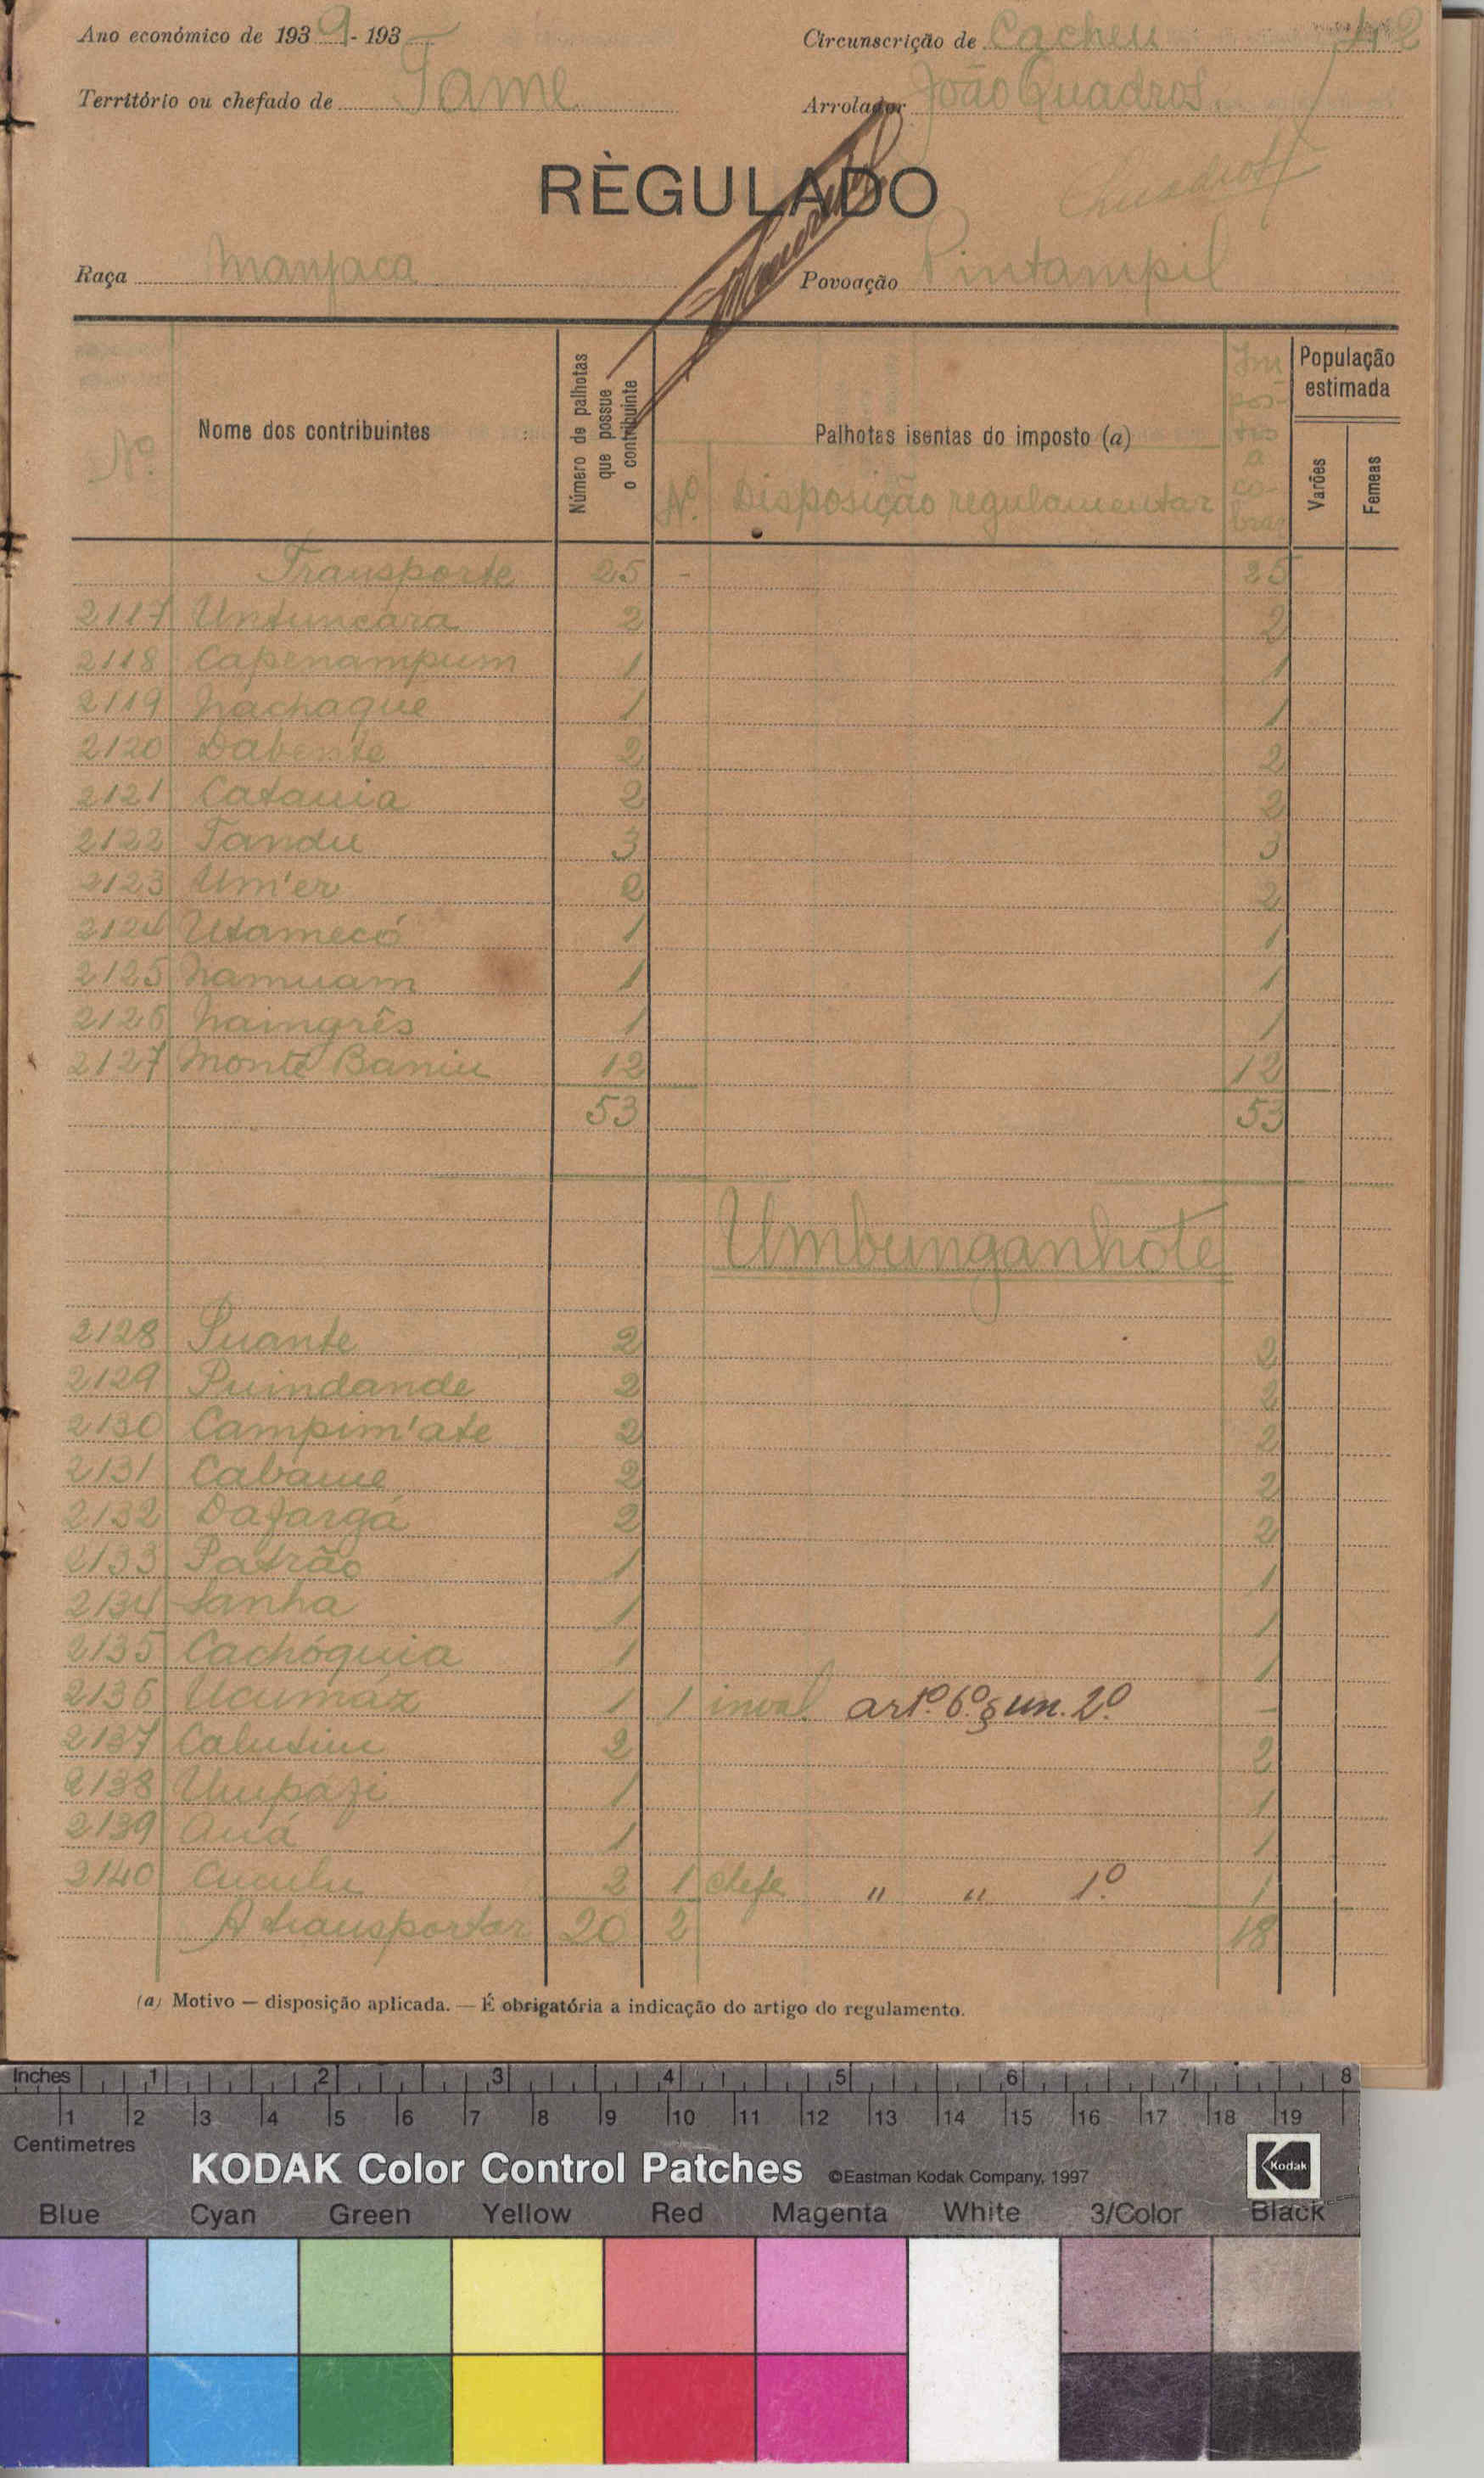 Ano económico de 1939-193
Circunscrição de Cacheu 42
Território ou chefado de Tame
Arrolador João Quadros
RÈGULADO
Quadros
Raça Manjaca
Povoação Pintampil
Nº
Nome dos contribuintes
Número de palhotas que possue o contribuinte
Palhotas isentas do imposto (a)
Nº. Disposição regulamentar
Impostos a cobrar
População estimada
Varões
Femeas
Transporte 25 - 25
2117 Untuncara 2 2
2118 Capenampum 1 1
2119 Nachaque 1 1
2120 Dabente 2 2
2121 Catauia 2 2
2122 Tandu 3 3
2123 Um'er 2 2
2124 Utamecó 1 1
2125 Namuam 1 1
2126 Naingrês 1 1
2127 Monte Baniu 12 12
53 53
Umbunganhote
2128 Puante 2 2
2129 Puindande 2 2
2130 Campim'ate 2 2
2131 Cabaue 2 2
2132 Dafargá 2 2
2133 Patrão 1 1
2134 Sanha 1 1
2135 Cachóquia 1 1
2136 Ucumáz 1 1 inval artº. 6º. § un. 2º -
2137 Calutiu 2 2
2138 Uupázi 1 1
2139 Auá 1 1
2140 Cuculu 2 1 chefe " " 1º 1
A transportar 20 2 18
(a) Motivo — disposição aplicada. — É obrigatória a indicação do artigo do regulamento.
Inches 1 2 3 4 5 6 7 8
1 2 3 4 5 6 7 8 9 10 11 12 13 14 15 16 17 18 19
Centimetres
KODAK Color Control Patches ©Eastman Kodak Company, 1997 Kodak
Blue Cyan Green Yellow Red Magenta White 3/Color Black